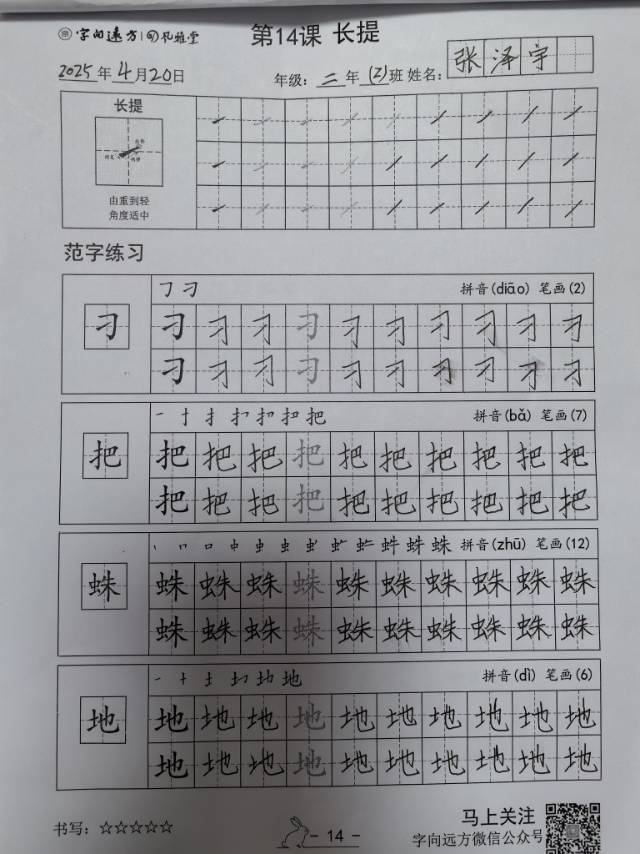 字向远方 凡雅堂 第14课 长提
2025年4月20日 年级：二年(2)班 姓名：张泽宇
长提
由重到轻
角度适中
范字练习
拼音(diāo) 笔画(2)
刁 刁 刁 刁 刁 刁 刁 刁 刁 刁 刁
刁 刁 刁 刁 刁 刁 刁 刁 刁 刁
拼音(bǎ) 笔画(7)
把 把 把 把 把 把 把 把 把 把 把
把 把 把 把 把 把 把 把 把 把
拼音(zhū) 笔画(12)
蛛 蛛 蛛 蛛 蛛 蛛 蛛 蛛 蛛 蛛 蛛
蛛 蛛 蛛 蛛 蛛 蛛 蛛 蛛 蛛 蛛
拼音(dì) 笔画(6)
地 地 地 地 地 地 地 地 地 地 地
地 地 地 地 地 地 地 地 地 地
马上关注
书写：☆☆☆☆☆ - 14 - 字向远方微信公众号